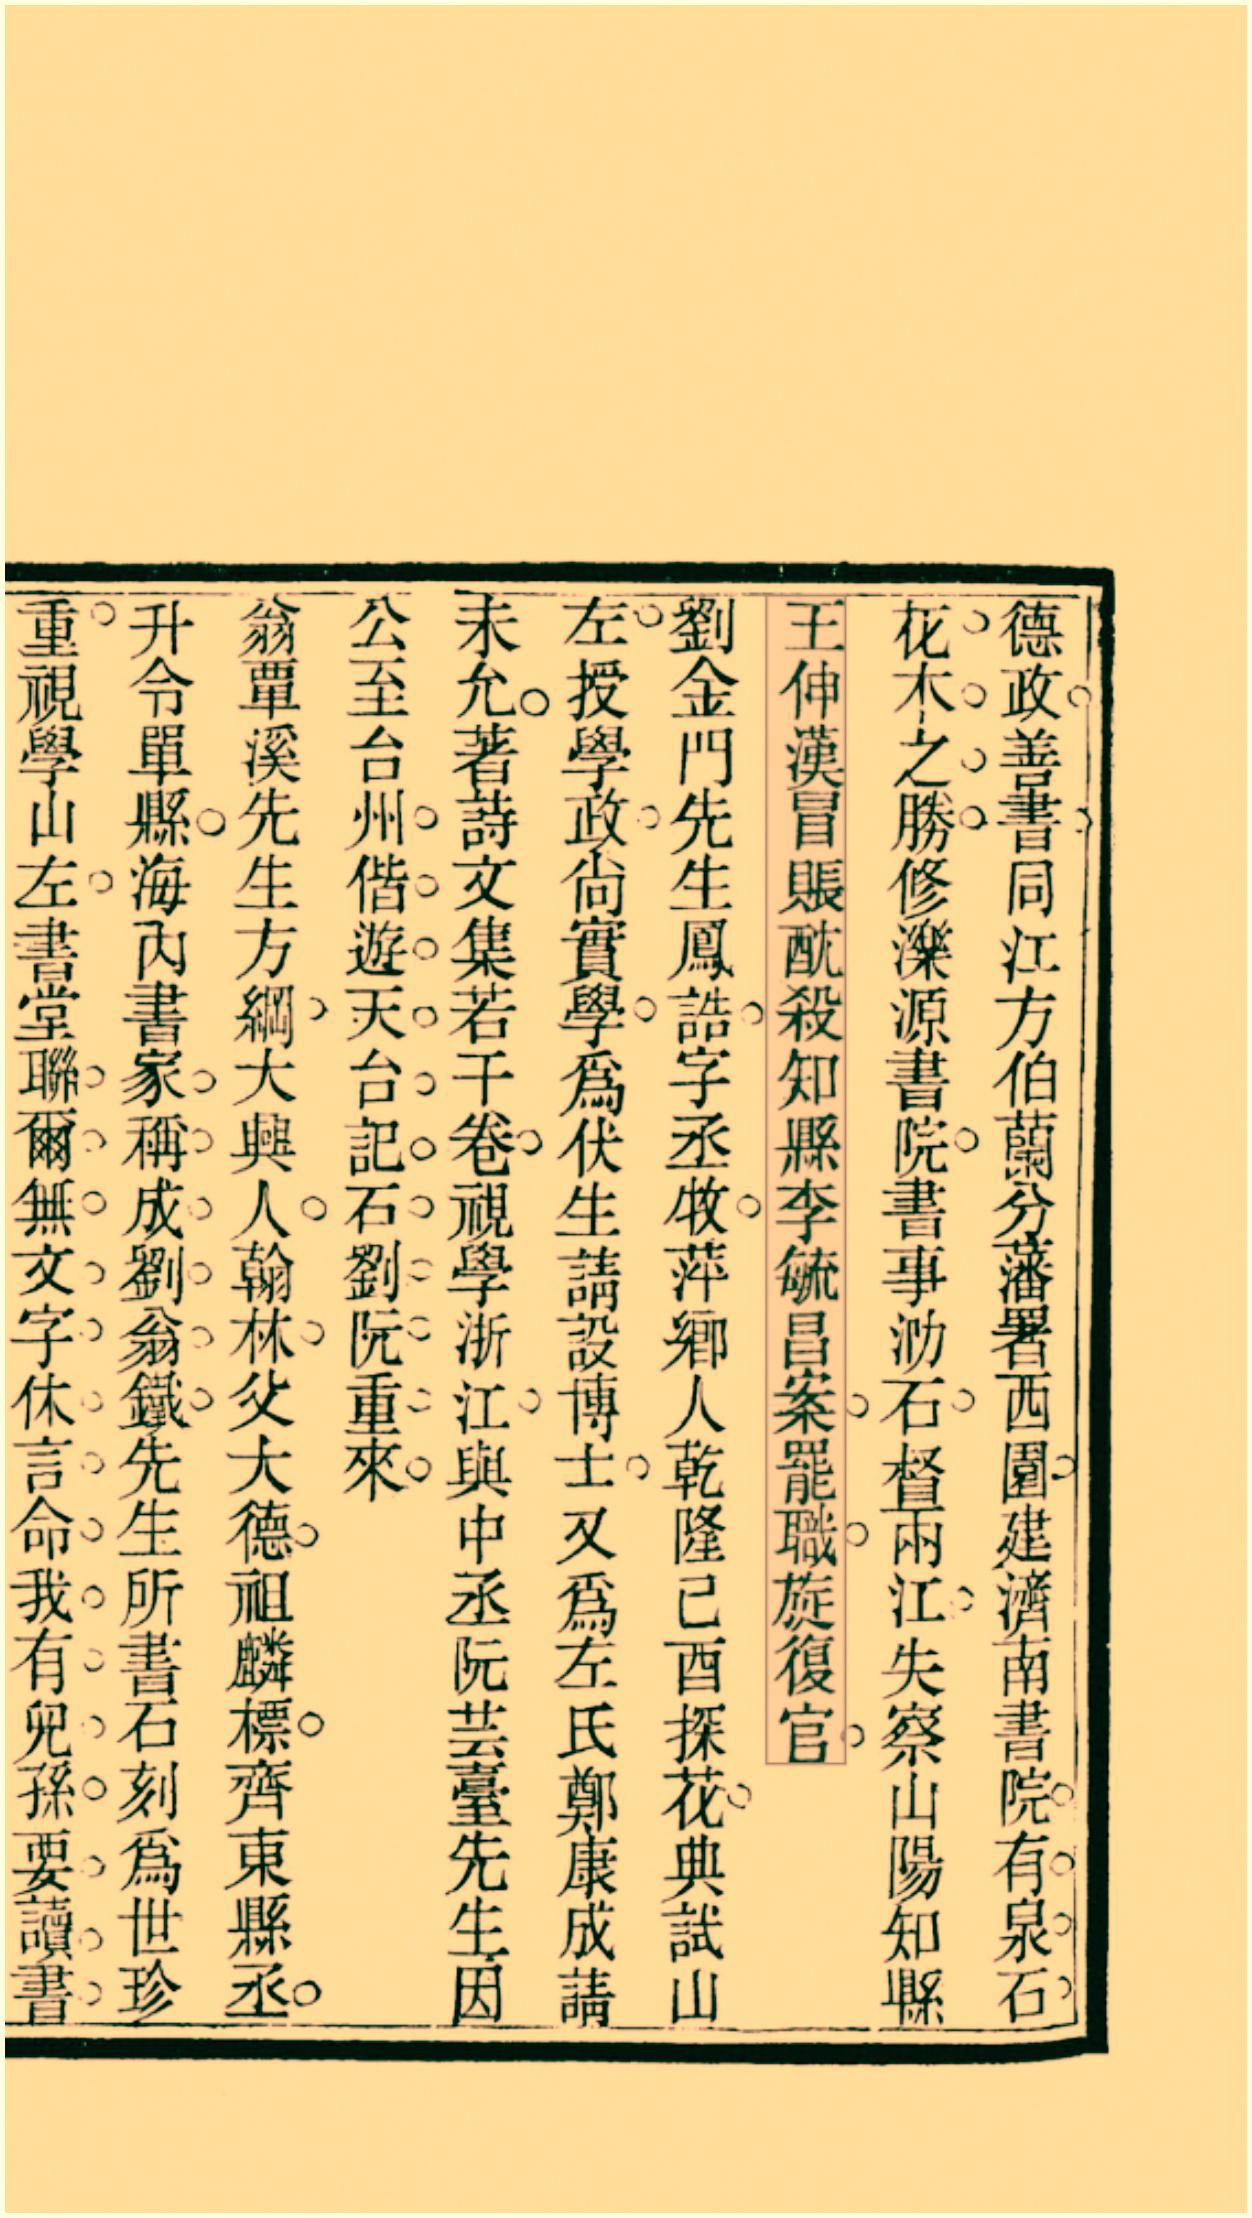 德政善書同江方伯蘭分藩署西園建濟南書院有泉石
花木之勝修濼源書院書事泐石督兩江失察山陽知縣
王伸漢冒賬酖殺知縣李毓昌案罷職旋復官
劉金門先生鳳誥字丞牧萍鄉人乾隆己酉探花典試山
左授學政尙實學爲伏生請設博士又爲左氏鄭康成請
未允著詩文集若干卷視學浙江與中丞阮芸臺先生因
公至台州偕遊天台記石劉阮重來
翁覃溪先生方綱大興人翰林父大德祖麟標齊東縣丞
升令單縣海內書家稱成劉翁鐵先生所書石刻爲世珍
重視學山左書堂聯爾無文字休言命我有兒孫要讀書